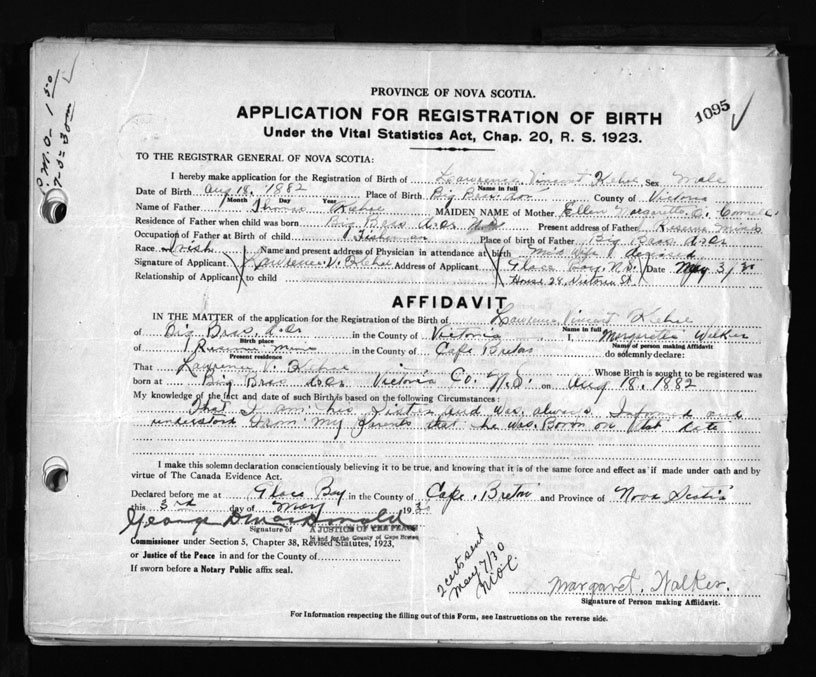 P.M.O. 1 50
PROVINCE OF NOVA SCOTIA.
APPLICATION FOR REGISTRATION OF BIRTH
1095 ✓
Under the Vital Statistics Act, Chap. 20, R. S. 1923.
TO THE REGISTRAR GENERAL OF NOVA SCOTIA:
I hereby make application for the Registration of Birth of Lawrence Vincent Kehoe Sex Male
Name in full
Date of Birth Aug 18, 1882 Place of Birth Big Bras dor County of Victoria
Month Day Year
Name of Father Thomas Kehoe MAIDEN NAME of Mother Ellen
Residence of Father when child was born Big Bras dor N.S. Present address of Father Reserve Mines
Occupation of Father at Birth of child Fisherman Place of birth of Father Big Bras dor
Race Irish Name and present address of Physician in attendance at birth
Signature of Applicant Lawrence V. Kehoe Address of Applicant Glace Bay N.S. Date May 3/30
Relationship of Applicant to child House 28 Victoria St
AFFIDAVIT
IN THE MATTER of the application for the Registration of the Birth of Lawrence Vincent Kehoe
Name in full
of Big Bras dor in the County of Victoria I, Walker
Birth place Name of person making Affidavit
of Reserve Mines in the County of Cape Breton do solemnly declare:
Present residence
That Lawrence V. Kehoe Whose Birth is sought to be registered was
born at Big Bras dor Victoria Co. N.S. on Aug 18, 1882
My knowledge of the fact and date of such Birth is based on the following Circumstances:
That I am his Sister and was always Informed and
understood from my parents that he was Born on that date
I make this solemn declaration conscientiously believing it to be true, and knowing that it is of the same force and effect as if made under oath and by
virtue of The Canada Evidence Act.
Declared before me at Glace Bay in the County of Cape Breton and Province of Nova Scotia
this 3rd day of May 1930
George D MacDonald
Signature of A JUSTICE OF THE PEACE
in and for the County of Cape Breton
Commissioner under Section 5, Chapter 38, Revised Statutes, 1923,
or Justice of the Peace in and for the County of
If sworn before a Notary Public affix seal.
2 certs sent
May 7/30
Margaret Walker.
Signature of Person making Affidavit.
For Information respecting the filling out of this Form, see Instructions on the reverse side.